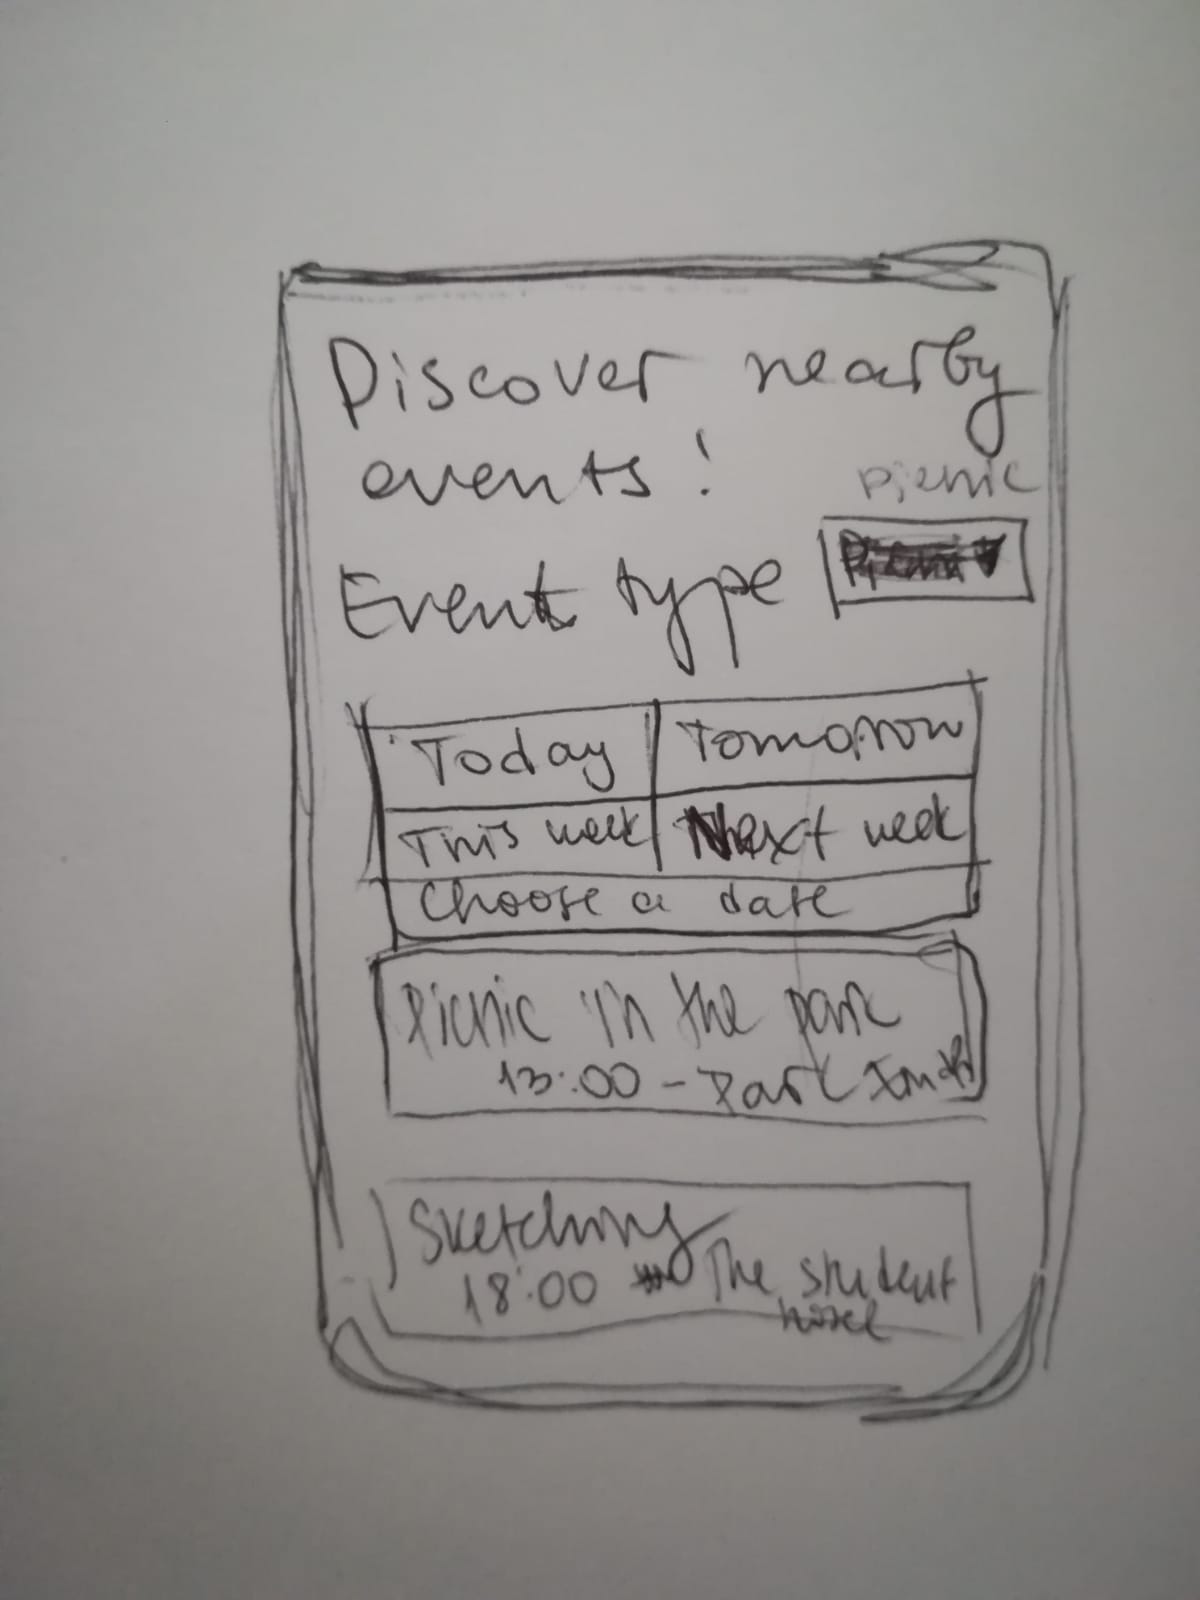 Discover nearby
events!
picnic
Event type
Today Tomorrow
This week Next week
Choose a date
Picnic in the park
13:00 - Park
Sketching
18:00 The student
hotel